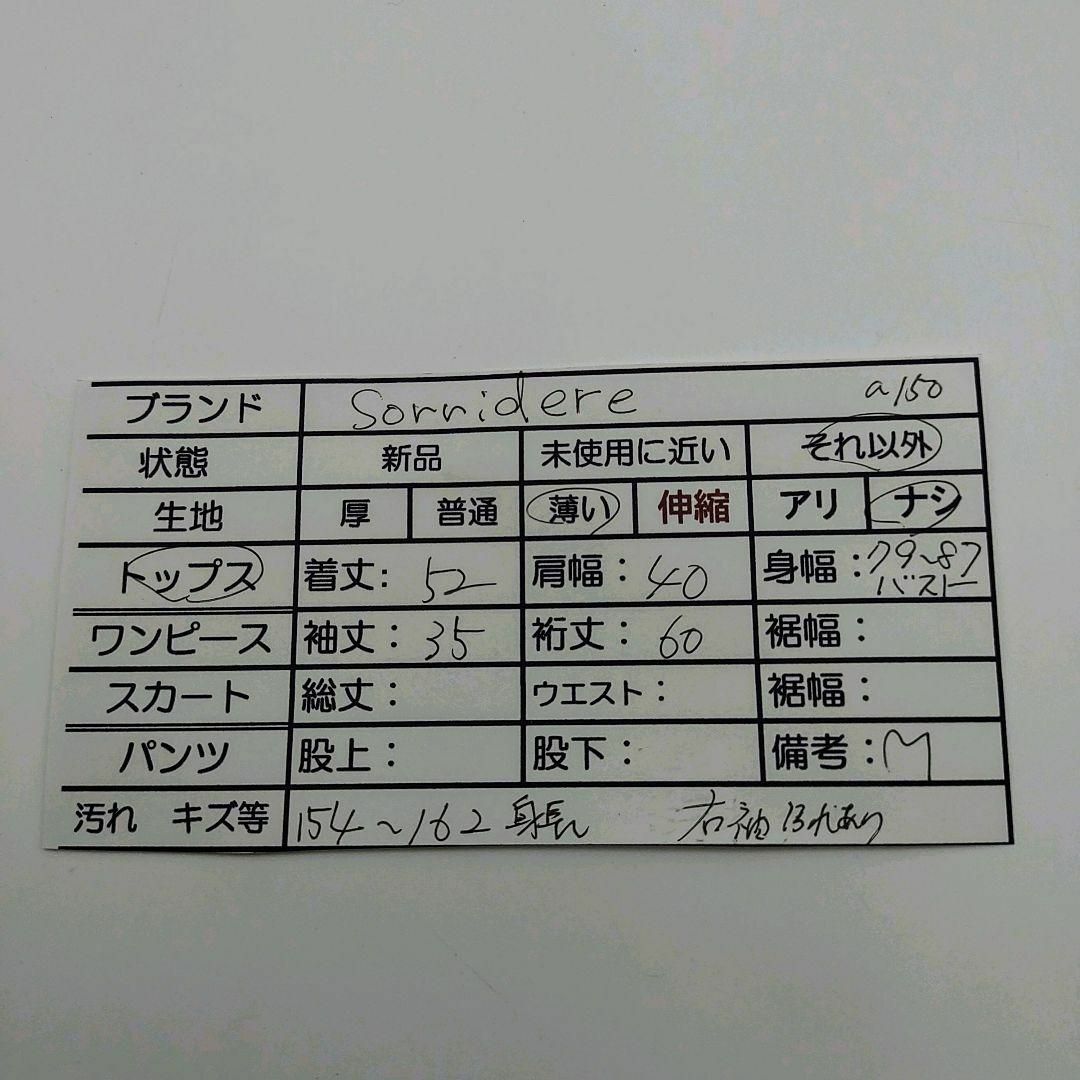 ブランド Sorridere a150
状態 新品 未使用に近い それ以外
生地 厚 普通 薄い 伸縮 アリ ナシ
トップス 着丈: 52 肩幅: 40 身幅: 79~87 バスト
ワンピース 袖丈: 35 裄丈: 60 裾幅:
スカート 総丈: ウエスト: 裾幅:
パンツ 股上: 股下: 備考: M
汚れ キズ等 154~162 身長 右袖 あり